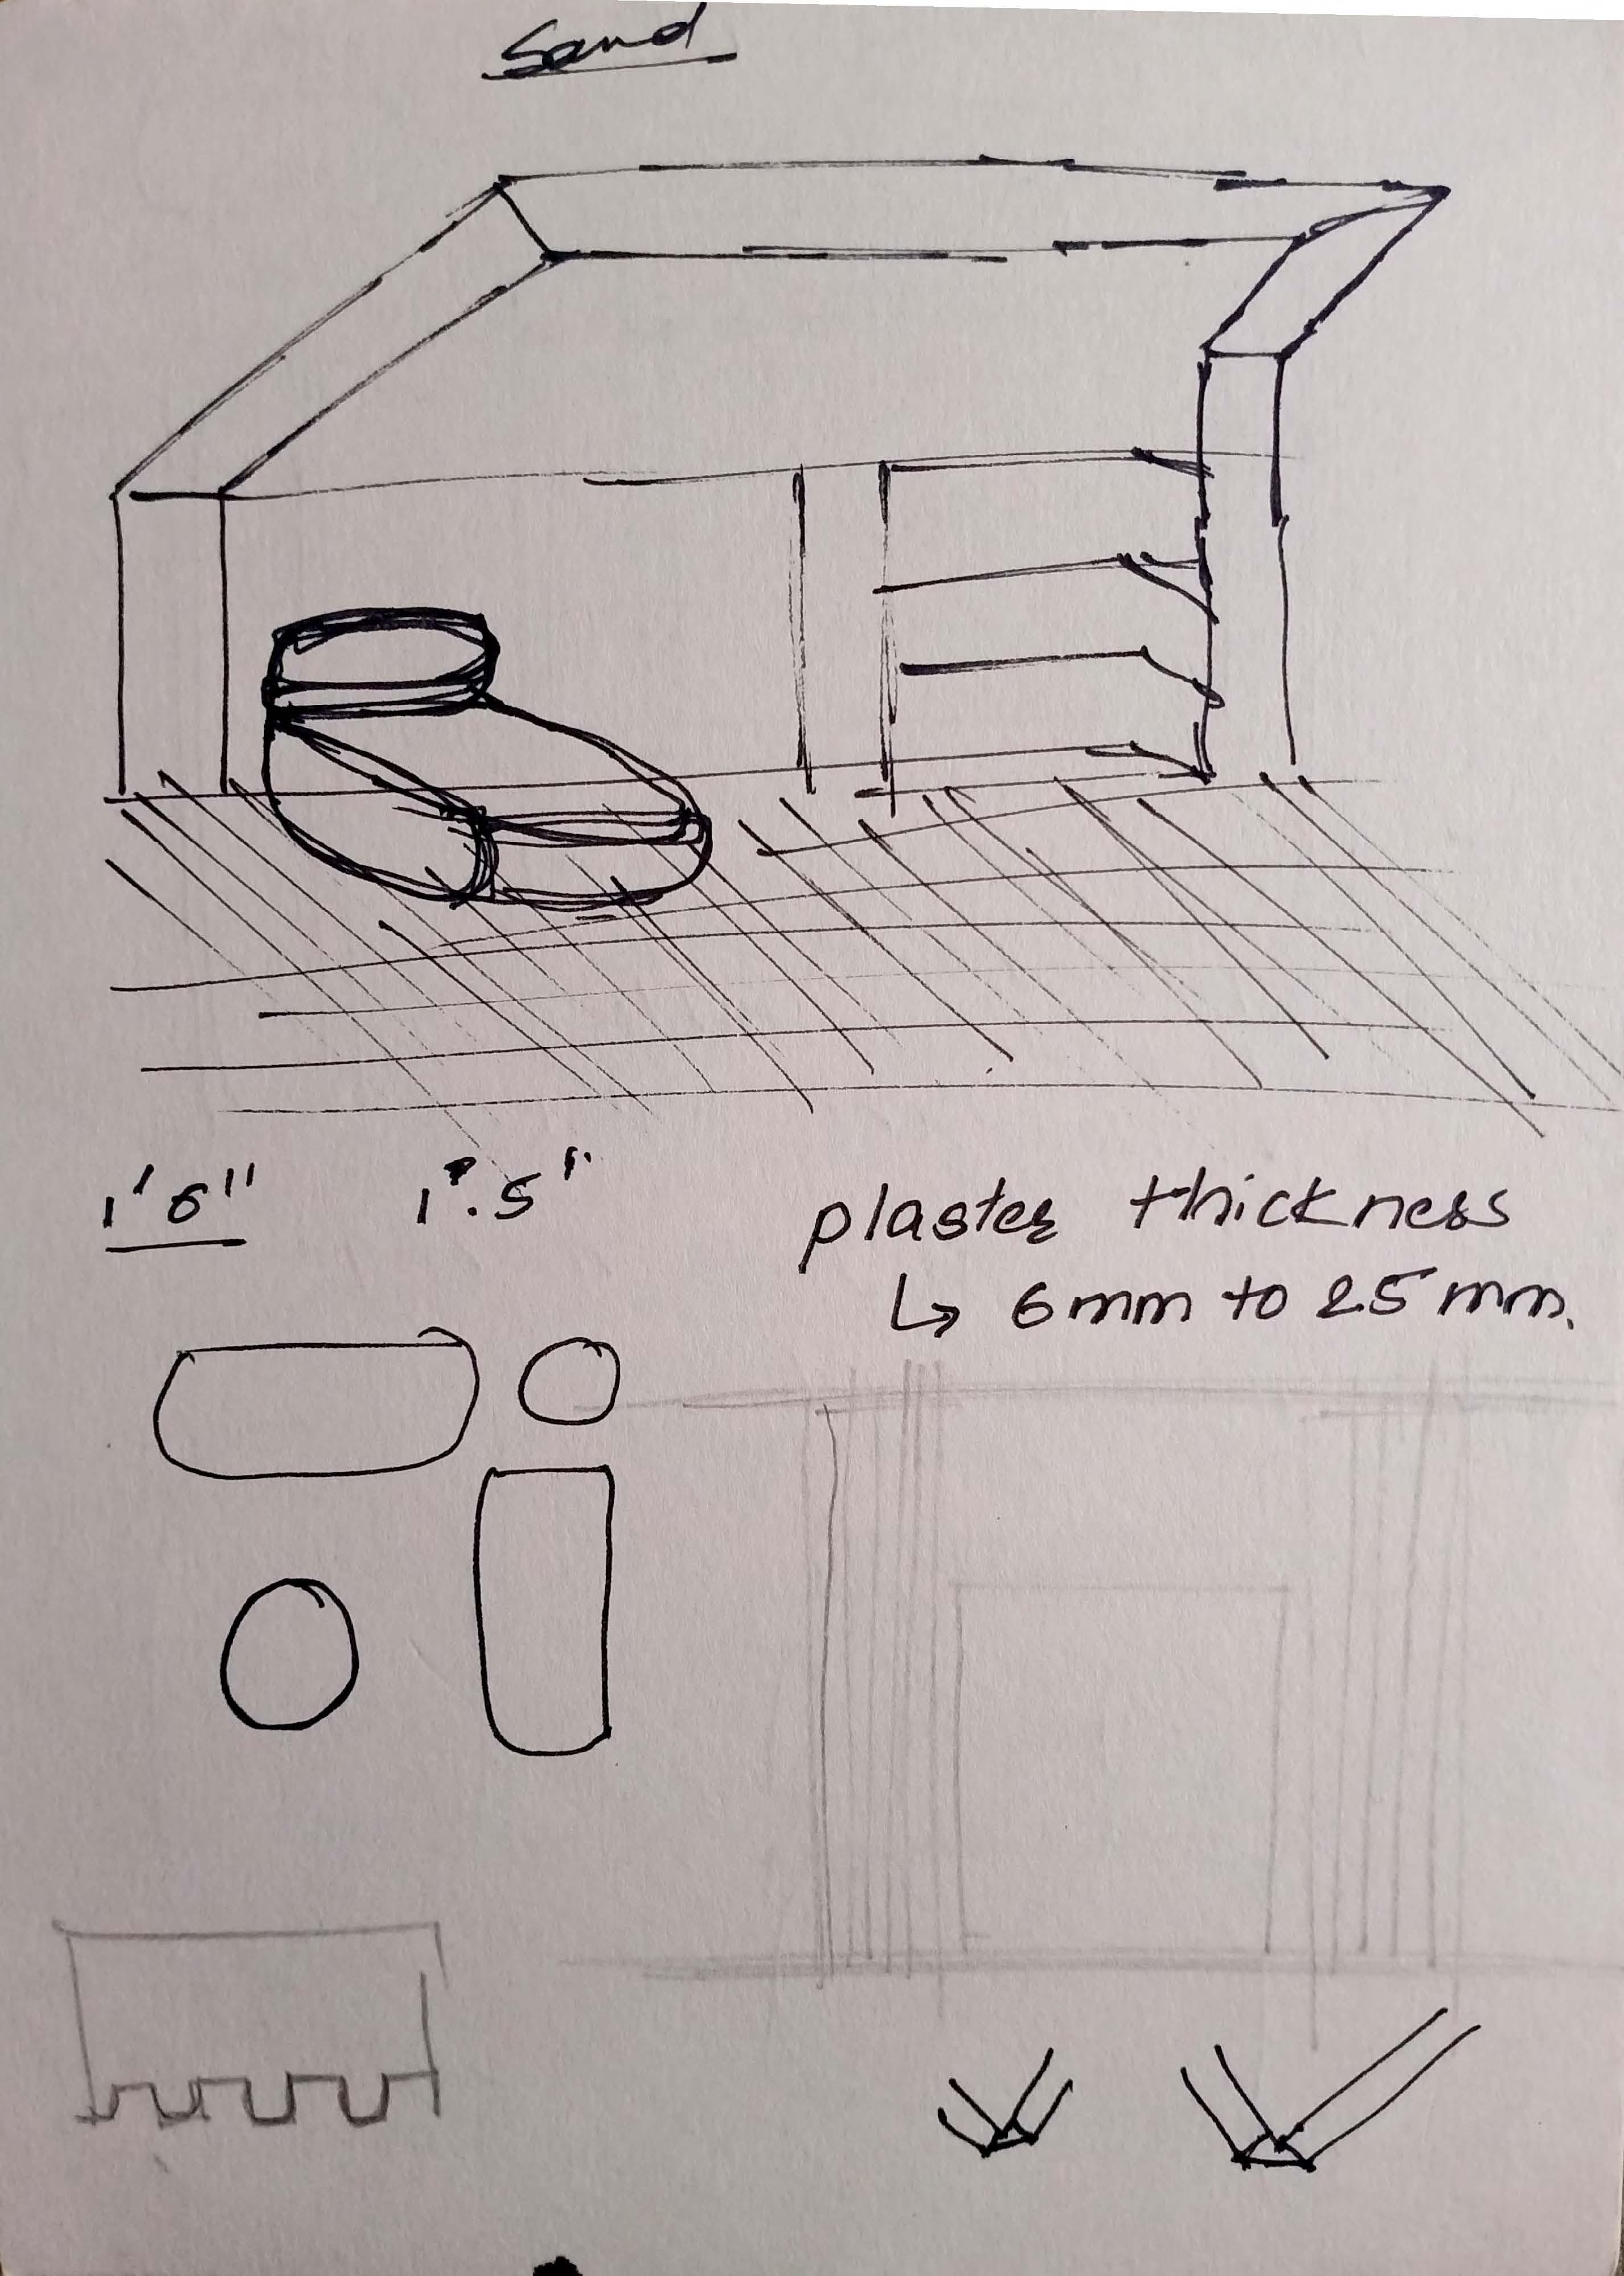 Sand
1'6" 1'.5" plaster thickness
↳ 6mm to 25 mm.